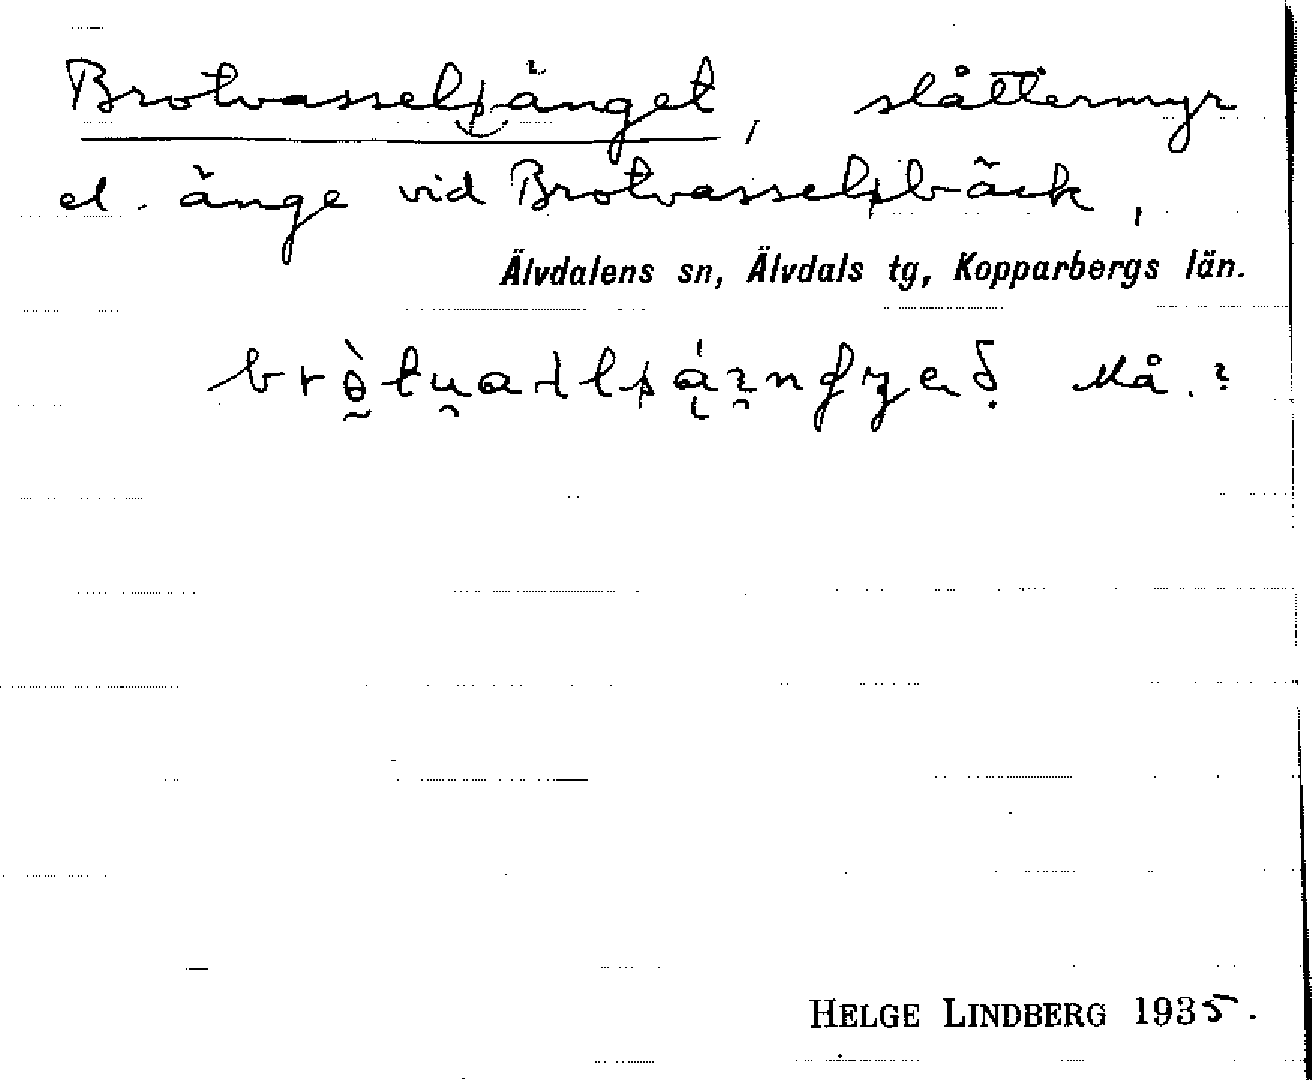 Brotvasselsänget, slåttermyr
el. änge vid Brotvasselsbäck,
Älvdalens sn, Älvdals tg, Kopparbergs län.
Må.?
HELGE LINDBERG 1935.